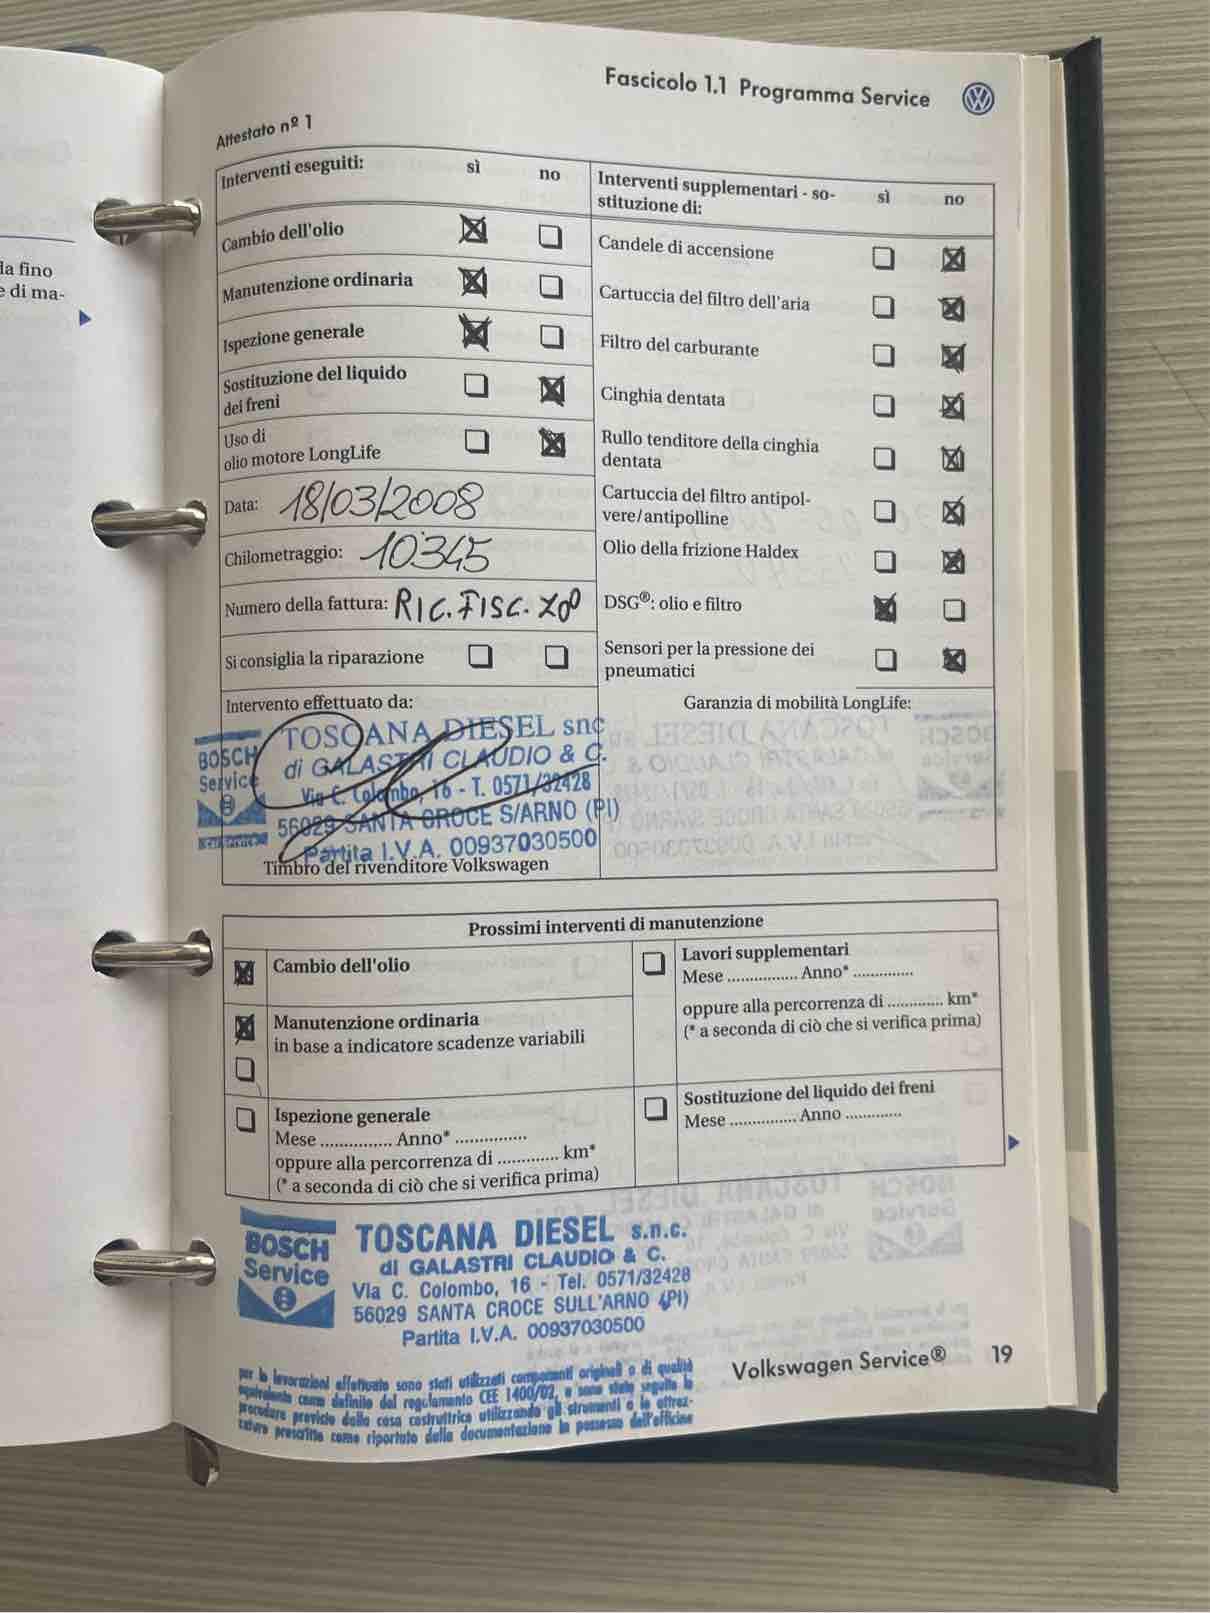 la fino
e di ma-
Fascicolo 1.1 Programma Service
Attestato nº 1
Interventi eseguiti: sì no
Cambio dell'olio
Manutenzione ordinaria
Ispezione generale
Sostituzione del liquido
dei freni
Uso di
olio motore LongLife
Data: 18/03/2008
Chilometraggio: 10345
Numero della fattura: RIC. FISC.
Si consiglia la riparazione
Intervento effettuato da:
BOSCH
Service
TOSCANA DIESEL snc
di GALASTRI CLAUDIO & C.
Via C. Colombo, 16 - T. 0571/32428
56029 SANTA CROCE S/ARNO (PI)
Partita I.V.A. 00937030500
Timbro del rivenditore Volkswagen
Interventi supplementari - so-
stituzione di: sì no
Candele di accensione
Cartuccia del filtro dell'aria
Filtro del carburante
Cinghia dentata
Rullo tenditore della cinghia
dentata
Cartuccia del filtro antipol-
vere/antipolline
Olio della frizione Haldex
DSG®: olio e filtro
Sensori per la pressione dei
pneumatici
Garanzia di mobilità LongLife:
Prossimi interventi di manutenzione
Cambio dell'olio
Manutenzione ordinaria
in base a indicatore scadenze variabili
Ispezione generale
Mese ............... Anno* ...............
oppure alla percorrenza di ............. km*
(* a seconda di ciò che si verifica prima)
Lavori supplementari
Mese ............... Anno* .............
oppure alla percorrenza di ............ km*
(* a seconda di ciò che si verifica prima)
Sostituzione del liquido dei freni
Mese ............... Anno ............
BOSCH
Service
TOSCANA DIESEL s.n.c.
di GALASTRI CLAUDIO & C.
Via C. Colombo, 16 - Tel. 0571/32428
56029 SANTA CROCE SULL'ARNO (PI)
Partita I.V.A. 00937030500
per le lavorazioni effettuate sono stati utilizzati componenti originali o di qualità
equivalente come definito dal regolamento CEE 1400/02, e sono state seguite le
procedure previste dalla casa costruttrice utilizzando gli strumenti e le attrez-
zature prescritte come riportato dalla documentazione in possesso dell'officina
Volkswagen Service® 19